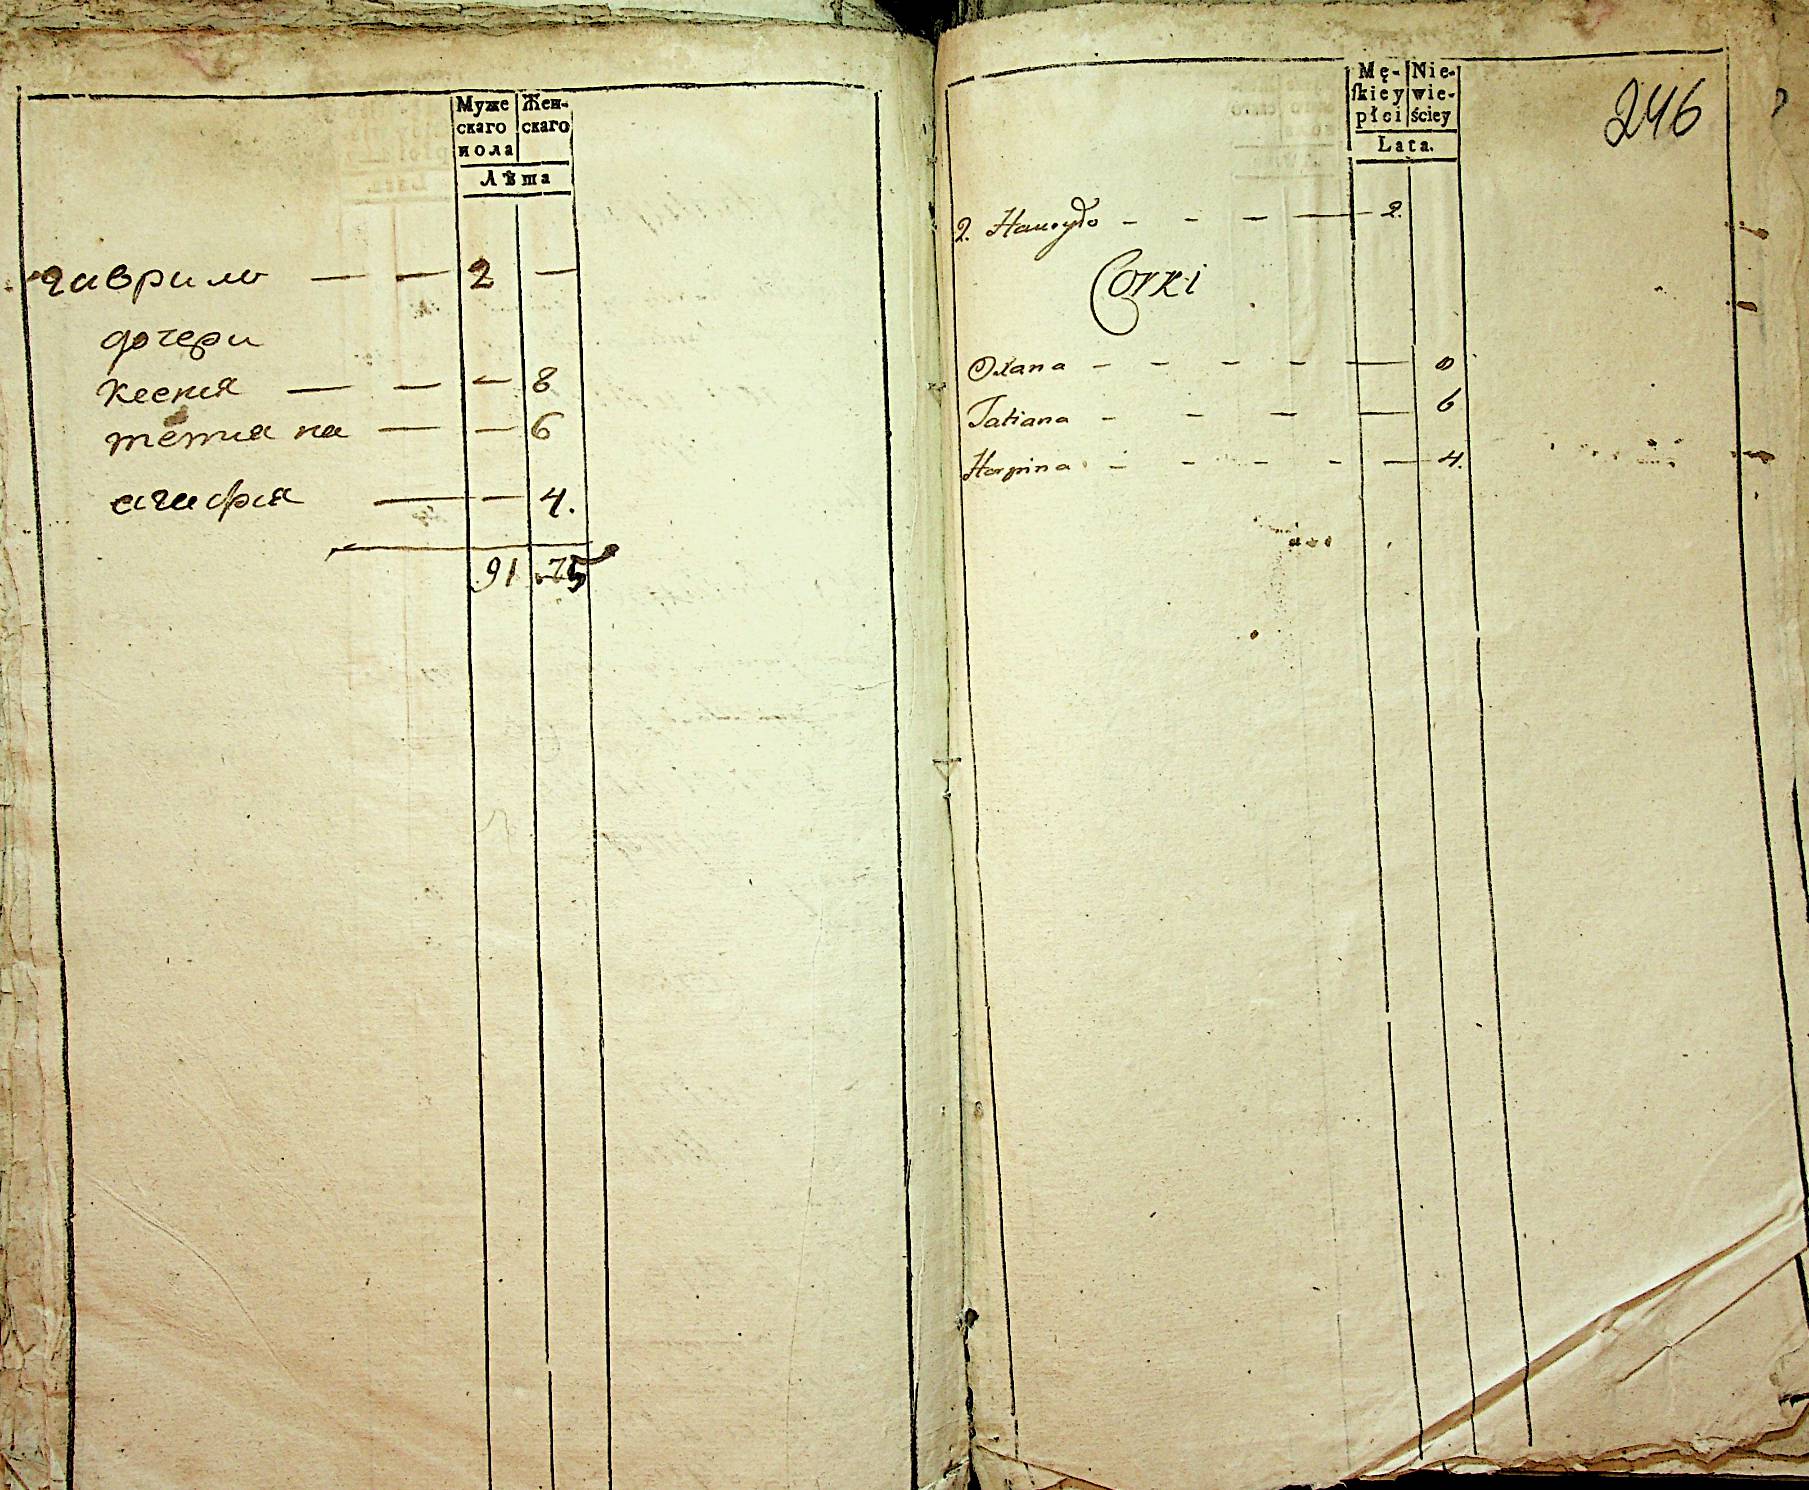 Муже Жен-
скаго скаго
пола
Лѣта
гаврило — — 2 —
дочери
Ксения — — — 8
тетиа на — — 6
агафия — — 4.
91 75
Mę- Nie-
ſkiey wie-
płci ściey
Lata.
246
2. - - - — 2.
Corki
Oxana - - - - — 8
Tatiana - - - — 6
Harpina - - - - — 4.